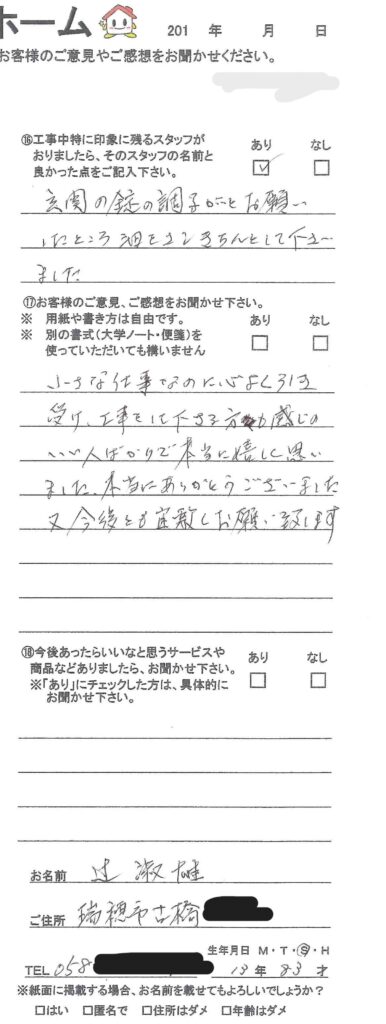 ホーム 201 年 月 日
お客様のご意見やご感想をお聞かせください。
⑯工事中特に印象に残るスタッフが
おりましたら、そのスタッフの名前と
良かった点をご記入下さい。
あり なし
玄関の錠の調子がとお願い
したところ油をさしきちんとして下さい
ました
⑰お客様のご意見、ご感想をお聞かせ下さい。
※ 用紙や書き方は自由です。
※ 別の書式(大学ノート・便箋)を
使っていただいても構いません
あり なし
小さな仕事なのに心よく引き
受け、工事をして下さる方も感じの
いい人ばかりで本当に嬉しく思い
ました、本当にありがとうございました
又今後とも宜敷しお願い致します
⑱今後あったらいいなと思うサービスや
商品などありましたら、お聞かせ下さい。
※「あり」にチェックした方は、具体的に
お聞かせ下さい。
あり なし
お名前 辻 淑雄
ご住所 瑞穂市古橋
生年月日 M・T・S・H
TEL 058 13年 83才
※紙面に掲載する場合、お名前を載せてもよろしいでしょうか?
□はい □匿名で □住所はダメ □年齢はダメ